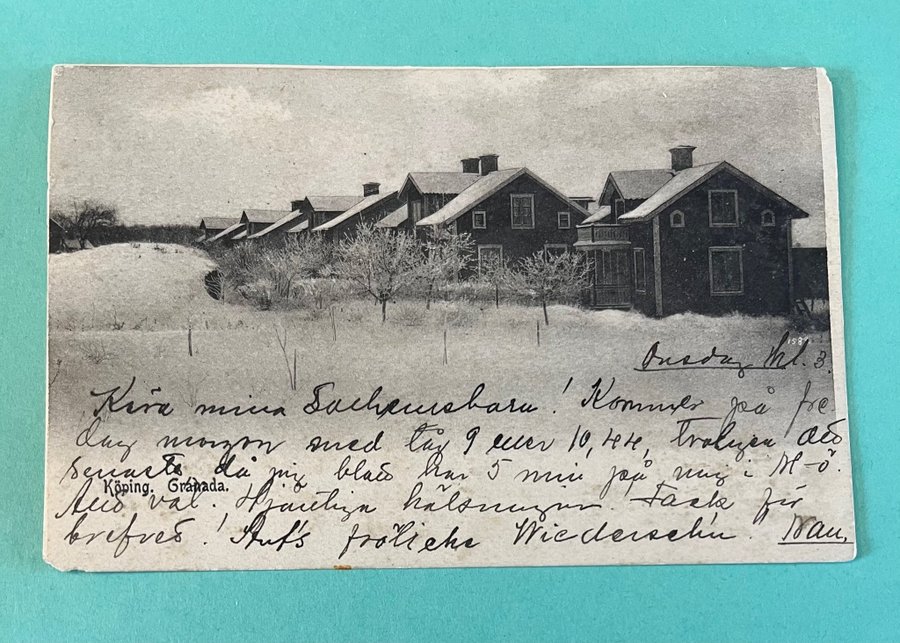 Onsdag kl. 3.
Kära mina ! Kommer på fre-
dag morgon med tåg 9 eller 10,44, troligen det
senaste då jag blott har 5 min på mig i
Allt väl. Hjärtliga hälsningar. Tack för
Köping. Granada.
brefvet! Auf's fröhliche Wiedersehn.